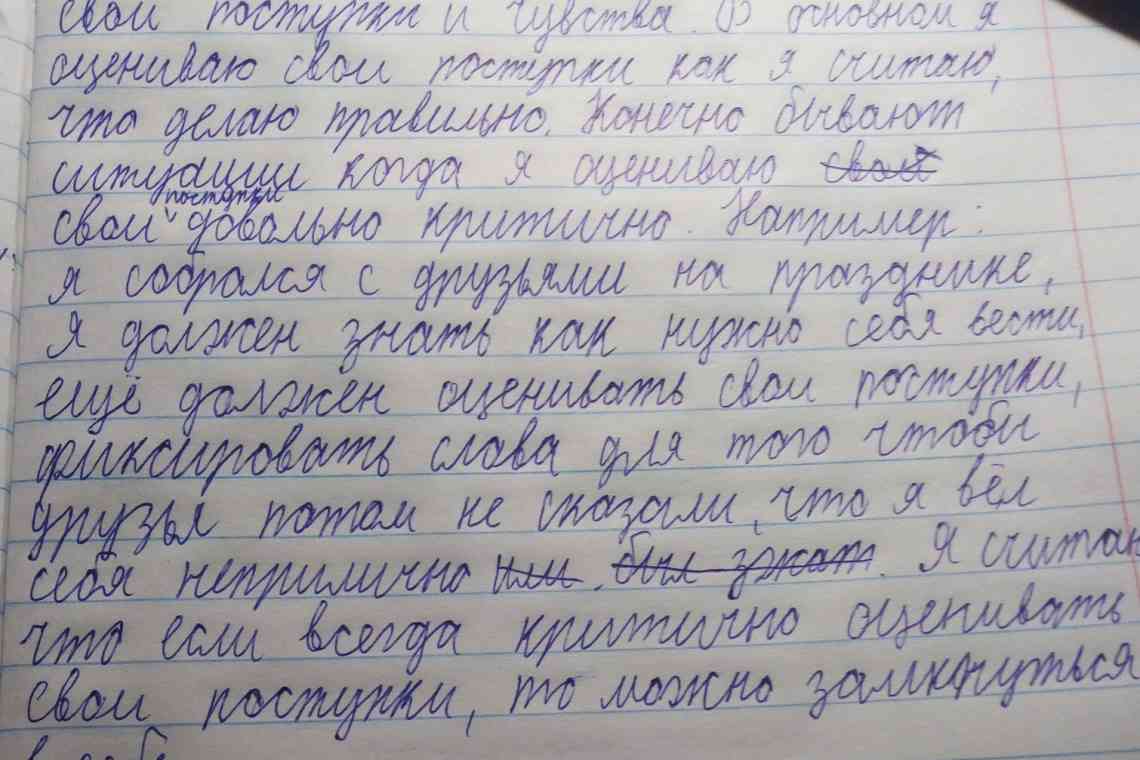 свои поступки и чувства. В основном я
оцениваю свои поступки как я считаю,
что делаю правильно. Конечно бывают
ситуации когда я оцениваю свои
поступки
свои довольно критично. Например:
я собрался с друзьями на празднике,
Я должен знать как нужно себя вести,
ещё должен оценивать свои поступки,
фиксировать слова для того чтобы
друзья потом не сказали, что я вёл
себя неприлично или был зажат. Я считаю
что если всегда критично оценивать
свои поступки, то можно замкнуться